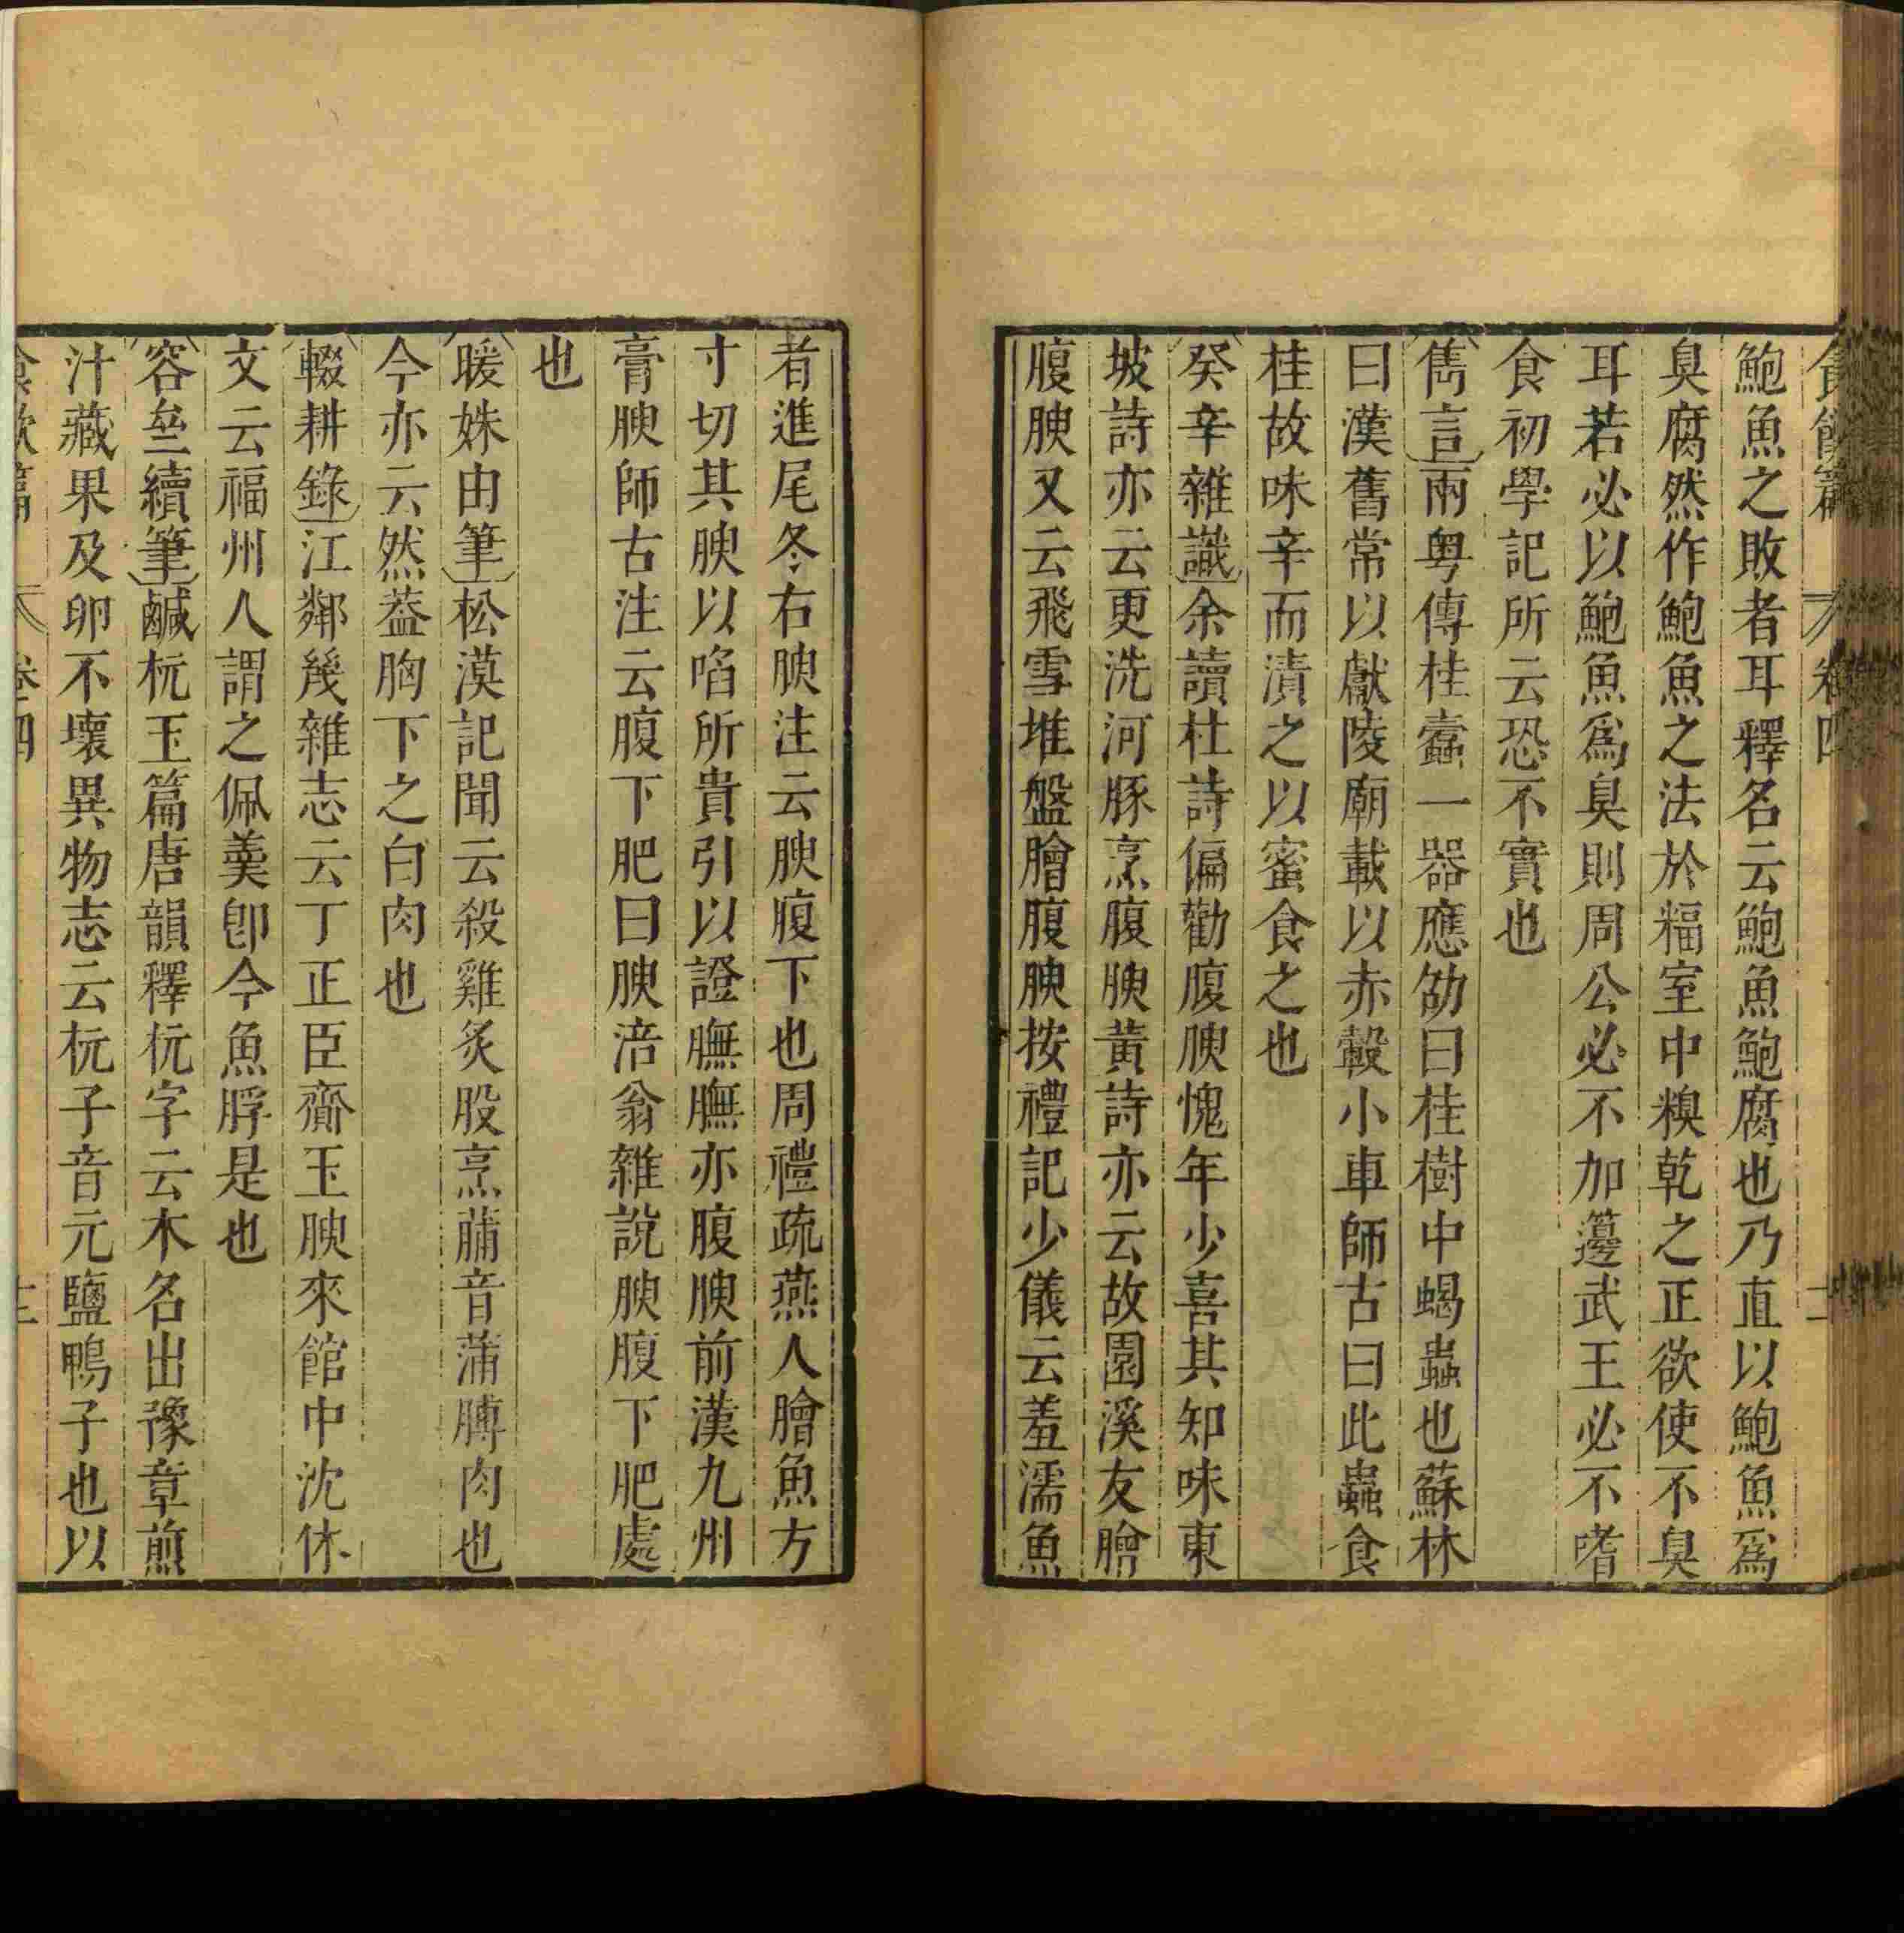 鮑魚之敗者耳釋名云鮑魚鮑腐也乃直以鮑魚爲
臭腐然作鮑魚之法於䊧室中糗乾之正欲使不臭
耳若必以鮑魚爲臭則周公必不加籩武王必不嗜
食初學記所云恐不實也
雋言兩粤傳桂蠹一器應劭曰桂樹中蝎蟲也蘇林
曰漢舊常以獻陵廟載以赤轂小車師古曰此蟲食
桂故味辛而漬之以蜜食之也
癸辛雜識余讀杜詩偏勸腹腴愧年少喜其知味東
坡詩亦云更洗河豚烹腹腴黃詩亦云故園溪友膾
腹腴又云飛雪堆盤膾腹腴按禮記少儀云羞濡魚
者進尾冬右腴注云腴腹下也周禮疏燕人膾魚方
寸切其腴以啗所貴引以證膴膴亦腹腴前漢九州
膏腴師古注云腹下肥曰腴涪翁雜說腴腹下肥處
也
暖姝由筆松漠記聞云殺雞炙股烹蒲音蒲膊肉也
今亦云然葢胸下之白肉也
輟耕錄江鄰幾雜志云丁正臣齎玉腴來館中沈休
文云福州人謂之佩羹卽今魚脬是也
容齋續筆鹹杬玉篇唐韻釋杬字云木名出豫章煎
汁藏果及卵不壞異物志云杬子音元鹽鴨子也以
食飲篇 卷四